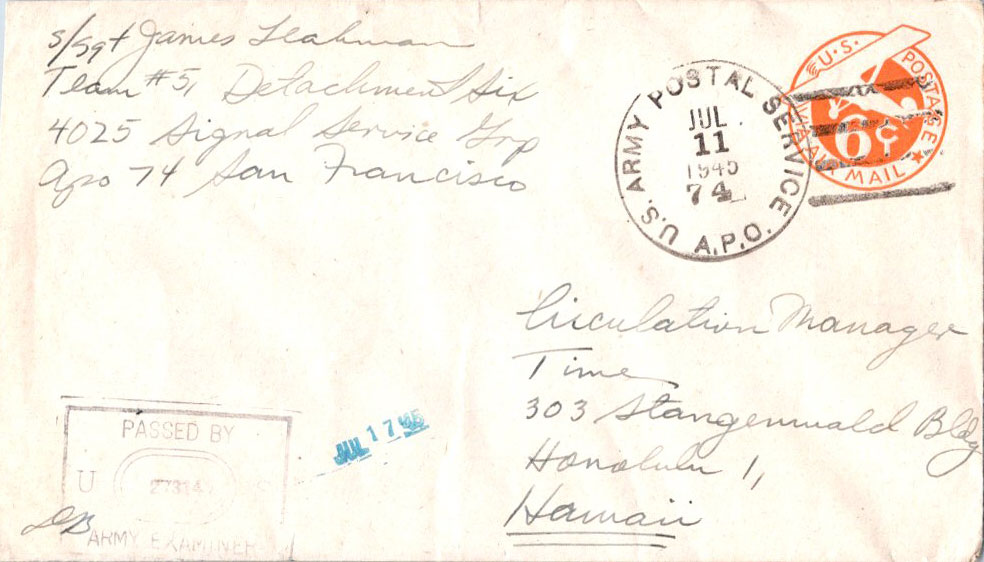 s/Sgt James
Team #5, Detachment Six
4025 Signal Service Grp
Apo 74 San Francisco
U.S. ARMY POSTAL SERVICE
JUL
11
1945
74
A.P.O.
U.S. POSTAGE
6¢
VIA AIR MAIL
Circulation Manager
Time
303 Stangenwald Bldg
Honolulu 1,
Hawaii
JUL 17 '45
PASSED BY
U S
ARMY EXAMINER